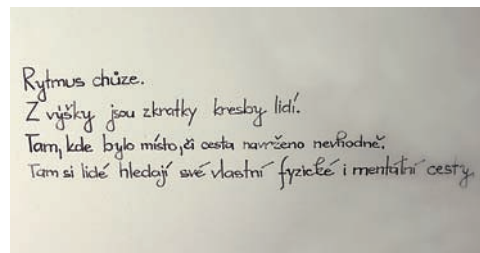 Rytmus chůze.
Z výšky jsou zkratky kresby lidí.
Tam, kde bylo místo, či cesta navrženo nevhodně.
Tam si lidé hledají své vlastní fyzické i mentální cesty.